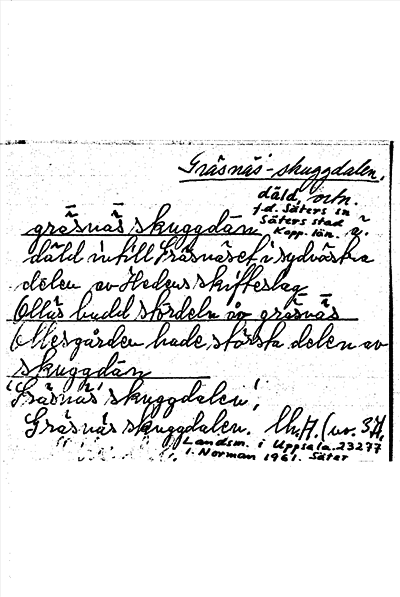 Gräsnäs-skuggdalen,
däld, ortn.
f.d. Säters sn
Säters stad
Kopp. län.
gräsnässkuggdän
däld intill Gräsnäset i sydvästra
delen av Hedens skifteslag
Olläs hadd stördeln
Ollesgården hade största delen av
skuggdän
'Gräsnäs' skuggdalen'.
Gräsnäs skuggdalen.
Landsm. i Uppsala 23277
I. Norman 1961. Säter